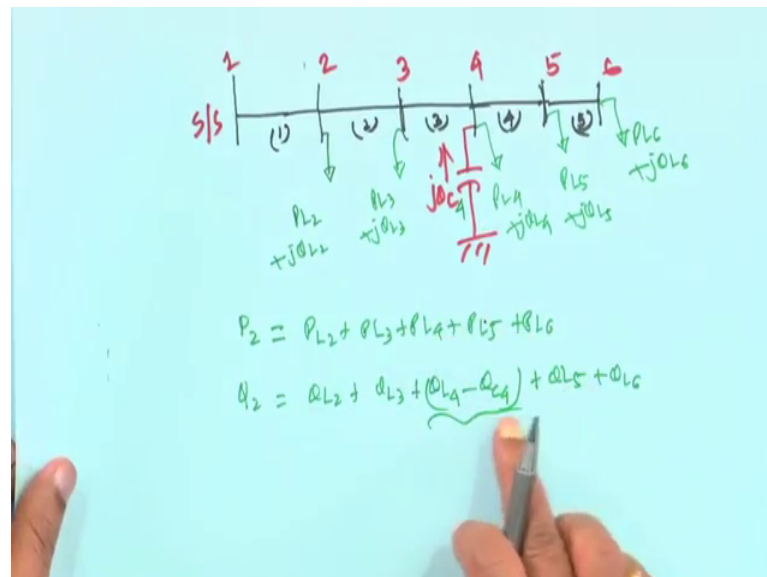 1 2 3 4 5 6
S/S (1) (2) (3) (4) (5)
PL2 +jQL2
PL3 +jQL3
jQC4
PL4 +jQL4
PL5 +jQL5
PL6 +jQL6
P2 = PL2 + PL3 + PL4 + PL5 + PL6
Q2 = QL2 + QL3 + (QL4 - QC4) + QL5 + QL6